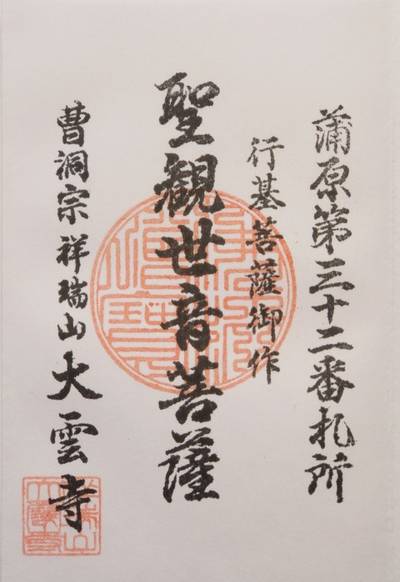 蒲原第三十二番札所
行基菩薩御作
聖観世音菩薩
曹洞宗祥瑞山大雲寺